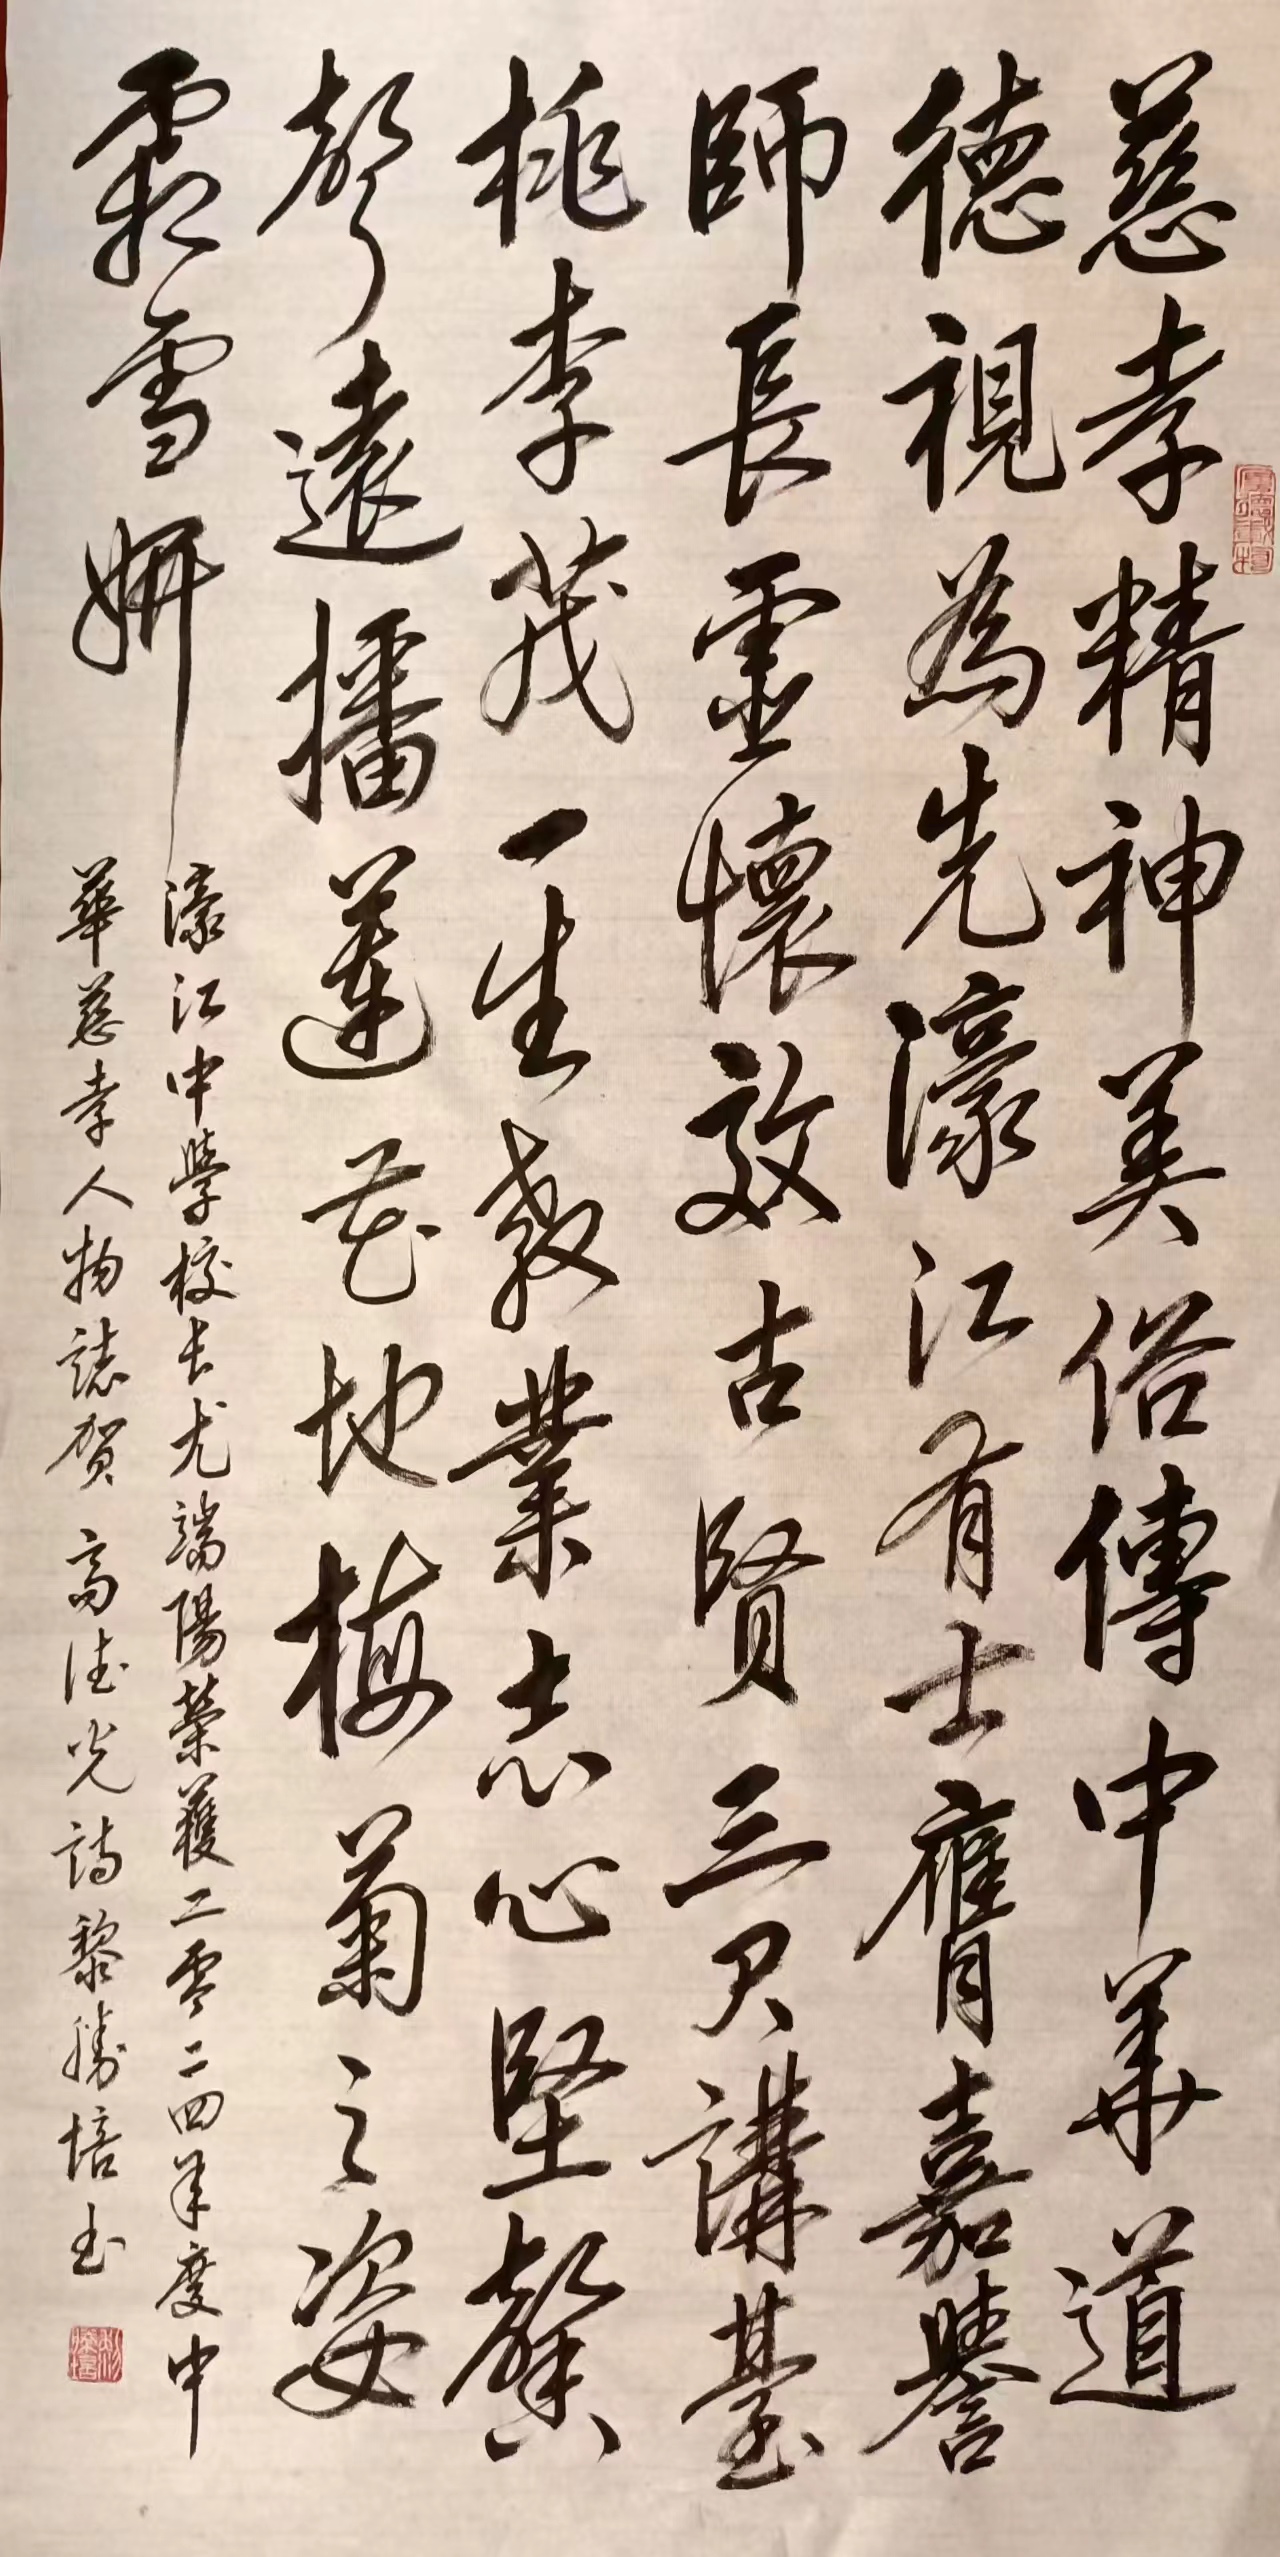 慈孝精神美俗傳中華道
德視為先濠江有士膺嘉譽
師長靈懷效古賢三尺講臺
桃李茂一生教業志心堅馨
聲遠播蓮花地梅菊之姿
霜雪妍
濠江中學校長尤端陽榮獲二零二四年度中
華慈孝人物誌賀 高德光詩黎勝培書
厚德載物